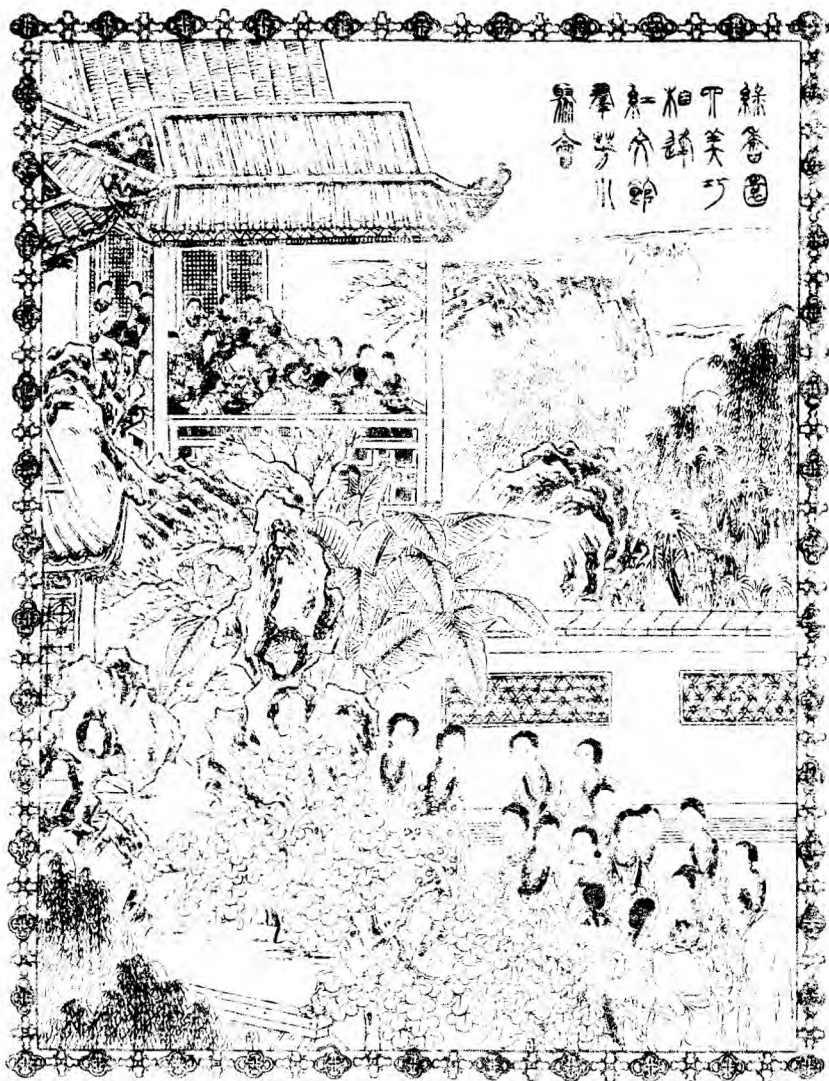 綠香園
四美巧
相逢
紅文館
羣芳小
聚會